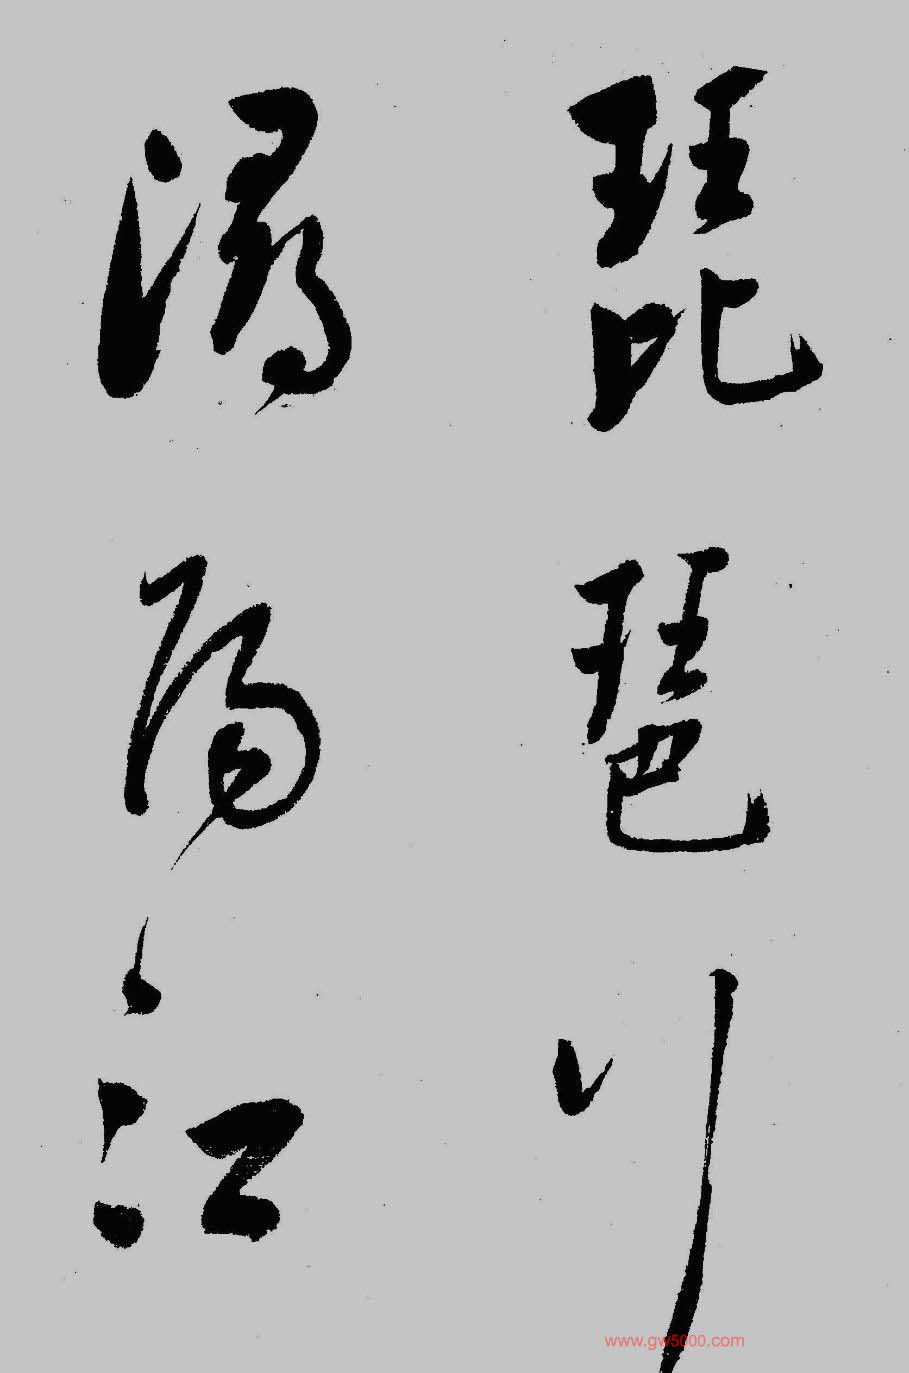 琵琶行
潯陽江
www.gw5000.com